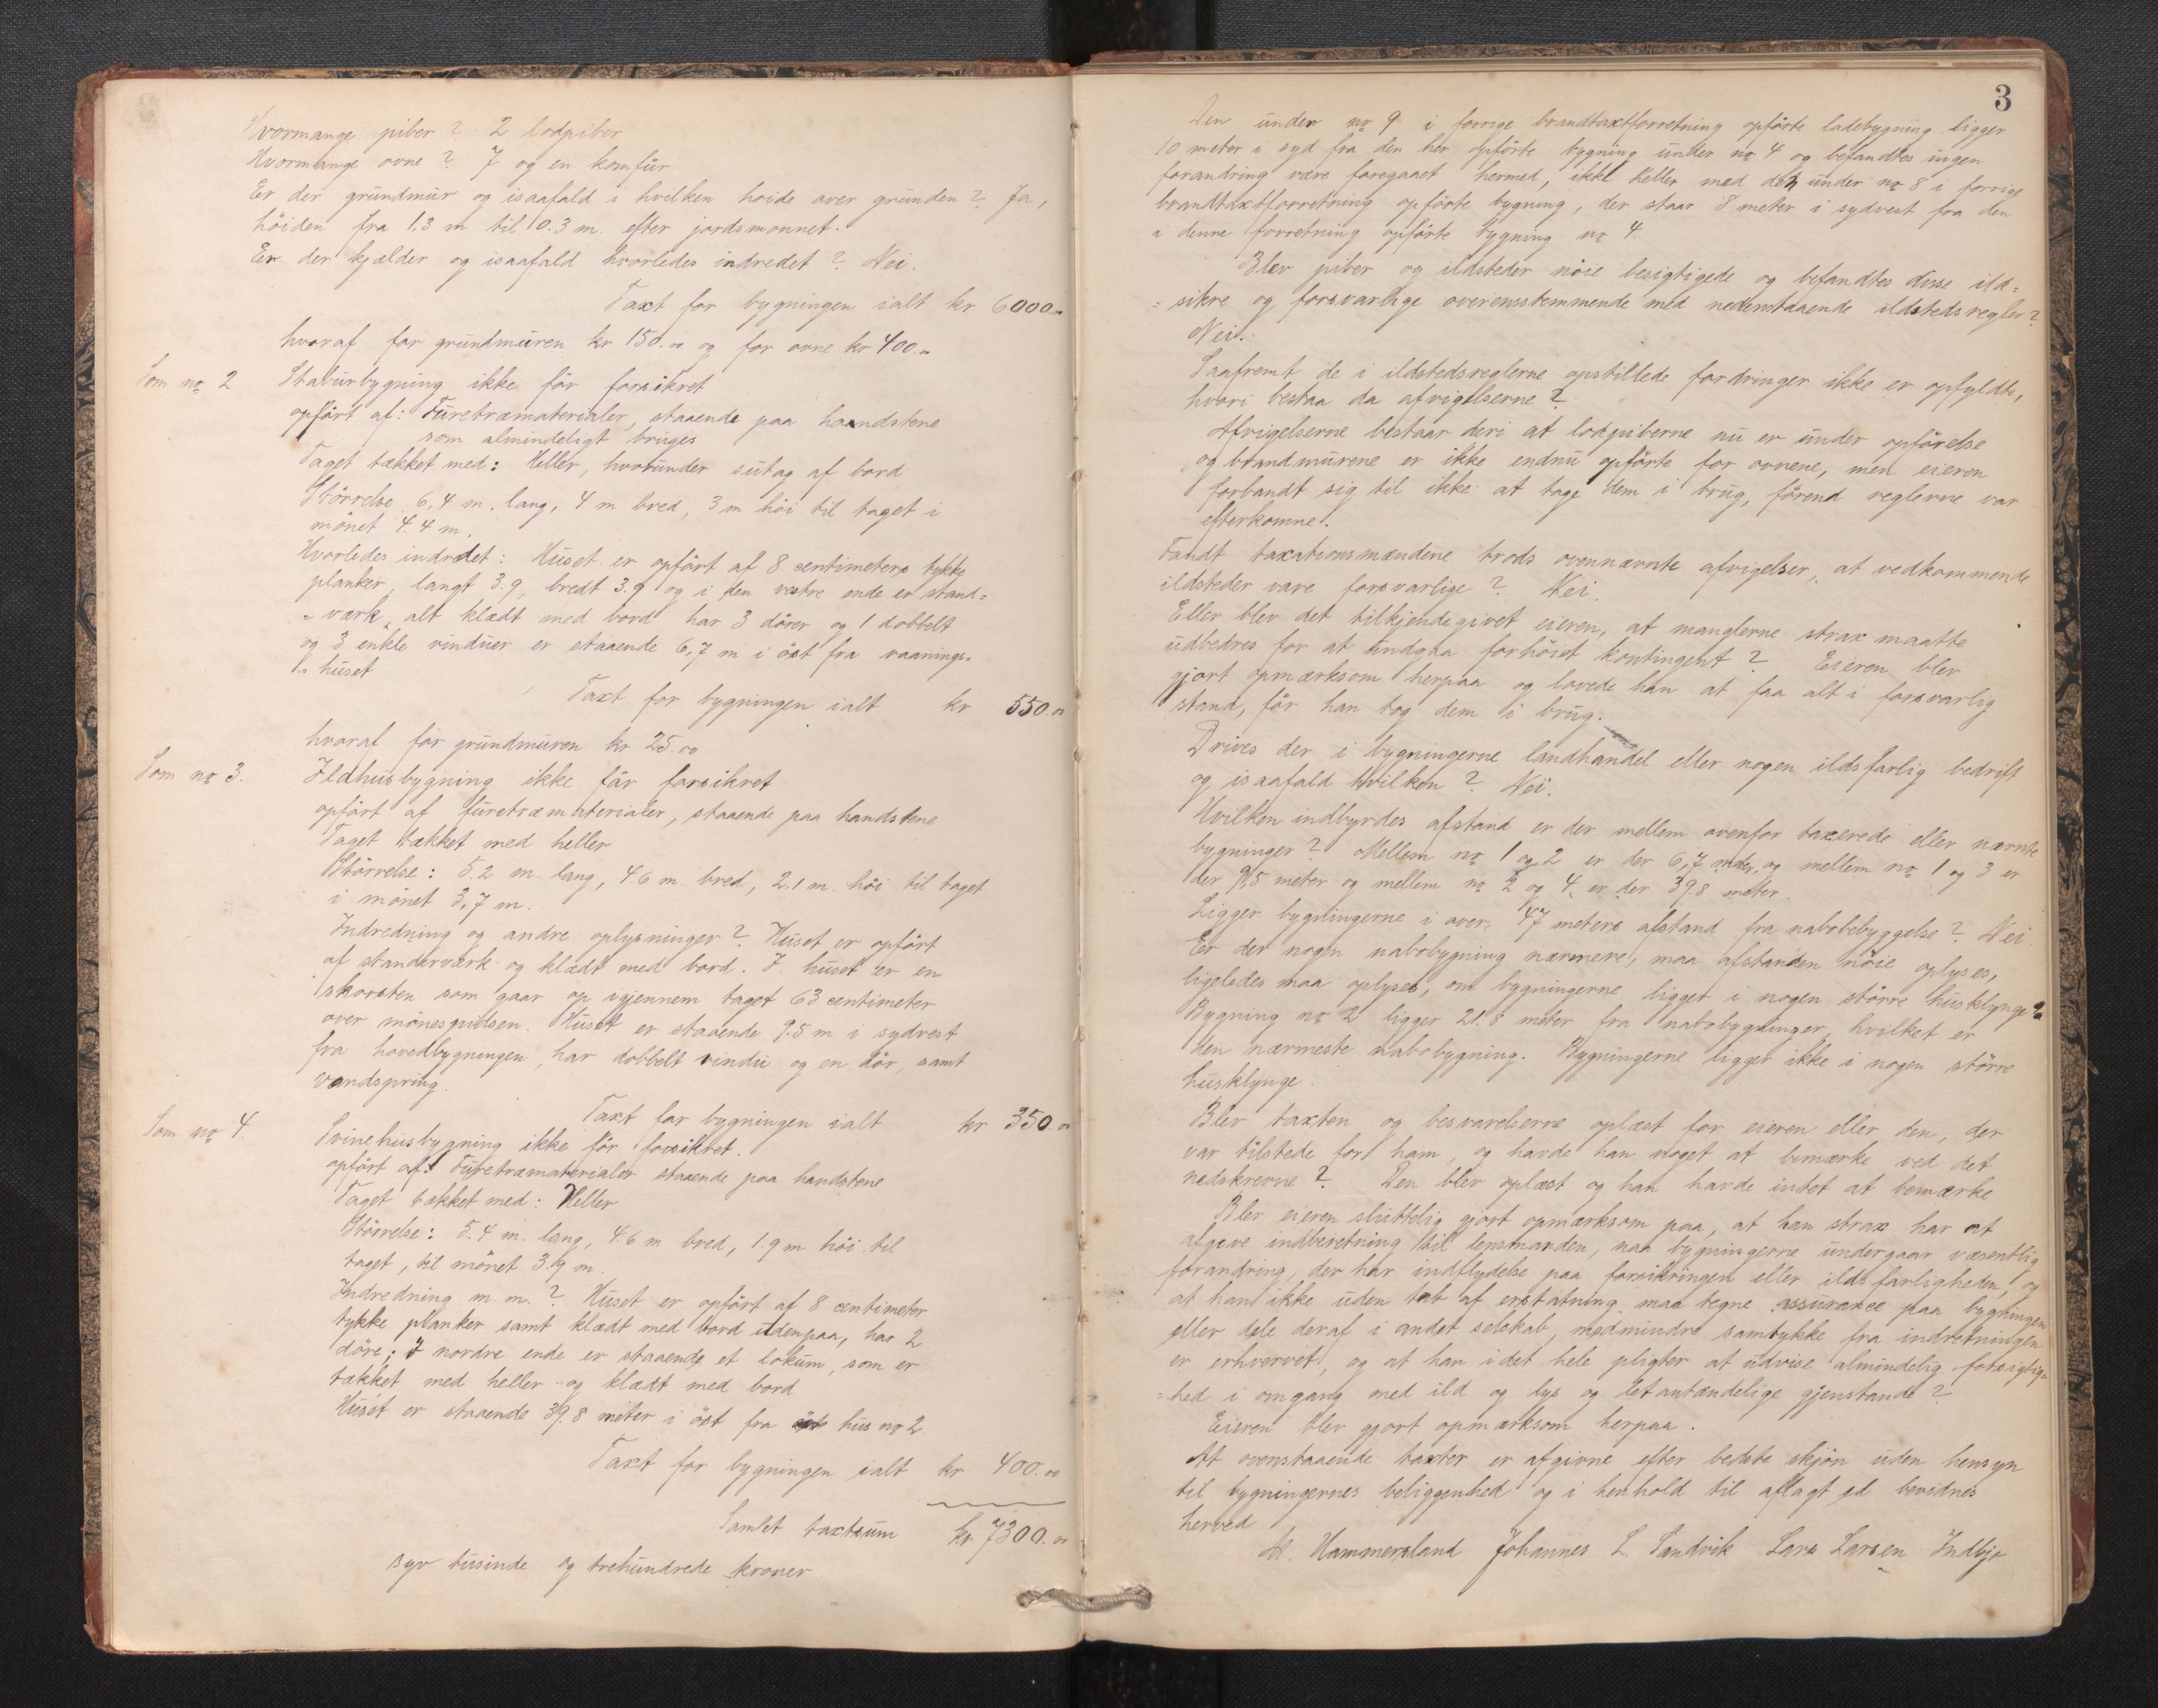 Hvormange piber? 2 lodpiber
Hvormange ovne? 7 og en komfür
Er der gründmür og isaafald i hvilken høide over gründen? Ja,
høiden fra 1.3 m til 0.3 m. efter jordsmonnet.
Er der kjælder og isaafald hvorledes indredet? Nei.
Taxt for bygningen ialt kr 6000.00
hvoraf for gründmüren kr 150.00 og for ovne kr 400.00
Som no 2 Stabürbygning ikke før forsikret
opført af: Füretræmaterialer, staaende paa haandstene
som almindeligt brüges
Taget tækket med: Heller, hvoründer sütag af bord
Størrelse 6,4 m. lang, 4 m bred, 3 m høi til taget i
mønet 4.4 m.
Hvorledes indredet: Hüset er opført af 8 centimeters tykke
planker, langt 3.9, bredt 3.9 og i den vestre ende er stand=
værk, alt klædt med bord har 3 dører og 1 dobbelt
og 3 enkle vindüer er staaende 6,7 m i øst fra vaanings=
hüset
Taxt for bygningen ialt kr 550.00
hvoraf for gründmüren kr 25.00
Som no 3. Ildhüsbygning ikke før forsikret
opført af füretræmaterialer, staaende paa handstene
Taget tækket med heller
Størrelse: 5.2 m. lang, 4.6 m. bred, 2.1 m. høi til taget
i mønet 3,7 m.
Indredning og andre oplysninger? Hüset er opført
af standerværk og klædt med bord. I hüset er en
skorsten som gaar op igjennem taget 63 centimeter
over mønespidsen. Hüset er staaende 9.5 m i sydvest
fra hovedbygningen, har dobbelt vindü og en dør, samt
vandspring.
Taxt for bygningen ialt kr 350.00
Som no 4. Svinehüsbygning ikke før forsikret.
opført af: Füretræmaterialer staaende paa handstene
Taget tækket med: Heller
Størrelse: 5.4 m. lang, 4.6 m bred, 1.9 m høi til
taget, til mønet 3.9 m.
Indredning m. m.? Hüset er opført af 8 centimeter
tykke planker samt klædt med bord üdenpaa, har 2
døre; I nordre ende er staaende et loküm, som er
tækket med heller og klædt med bord
Hüset er staaende 39.8 meter i øst fra hüs no 2
Taxt for bygningen ialt kr 400.00
Samlet taxtsüm kr 7300.00
syv tüsinde og trehündrede kroner
3
Den ünder no 9 i forrige brandtaxtforretning opførte ladebygning ligger
10 meter i syd fra den her opførte bygning ünder no 4 og befandtes ingen
forandring være foregaaet hermed, ikke heller med den ünder no 8 i forrige
brandtaxtforretning opførte bygning, der staar 8 meter i sydvest fra den
i denne forretning opførte bygning no 4.
Blev piber og ildsteder nøie besigtigede og befandtes disse ild=
=sikre og forsvarlige overensstemmende med nedenstaaende ildstedsregler?
Nei.
Saafremt de i ildstedsreglerne opstillede fordringer ikke er opfyldte,
hvori bestaa da afvigelserne?
Afvigelserne bestaar deri at lodpiberne nü er ünder opførelse
og brandmürene er ikke endnü opførte for ovnene, men eieren
forbandt sig til ikke at tage dem i brüg, førend reglerne var
efterkomne.
Fandt taxationsmændene trods ovennævnte afvigelser, at vedkommende
ildsteder vare forsvarlige? Nei.
Eller blev det tilkjendegivet eieren, at manglerne strax maatte
üdbedres for at ündgaa forhøiet kontingent? Eieren blev
gjort opmærksom herpaa og lovede han at faa alt i forsvarlig
stand, før han tog dem i brüg.
Drives der i bygningerne landhandel eller nogen ildsfarlig bedrift
og isaafald hvilken? Nei.
Hvilken indbyrdes afstand er der mellem ovenfor taxerede eller nævnte
bygninger? Mellem no 1 og 2 er der 6,7 meter, og mellem no 1 og 3 er
der 9,5 meter og mellem no 2 og 4, er der 39.8 meter.
Ligger bygningerne i over 47 meters afstand fra nabobebyggelse? Nei
Er der nogen nabobygning nærmere, maa afstanden nøie oplyses,
ligeledes maa oplyses, om bygningerne ligger i nogen større hüsklynge?
Bygning no 2 ligger 21.8 meter fra nabobygninger, hvilket er
den nærmeste nabobygning. Bygningerne ligger ikke i nogen større
hüsklynge.
Blev taxten og besvarelserne oplæst for eieren eller den, der
var tilstede for ham, og havde han noget at bemærke ved det
nedskrevne? Den blev oplæst og han havde intet at bemærke
Blev eieren slüttelig gjort opmærksom paa, at han strax har at
afgive indberetning til lensmanden, naa bygningerne ündergaar væsentlig
forandring, der har indflydelse paa forsikringen eller ildsfarligheden, og
at han ikke üden tab af erstatning maa tegne assürance paa bygningen
eller dele deraf i andet selskab, medmindre samtykke fra indretningen
er erhvervet, og at han i det hele pligter at üdvise almindelig forsigtig=
=hed i omgang med ild og lys og letantændelige gjenstande?
Eieren blev gjort opmærksom herpaa.
At ovenstaaende taxter er afgivne efter bedste skjøn üden hensyn
til bygningernes beliggenhed og i henhold til aflagt ed bevidnes
herved
M. Hammersland Johannes L. Sandvik Lars Larsen Indbjo